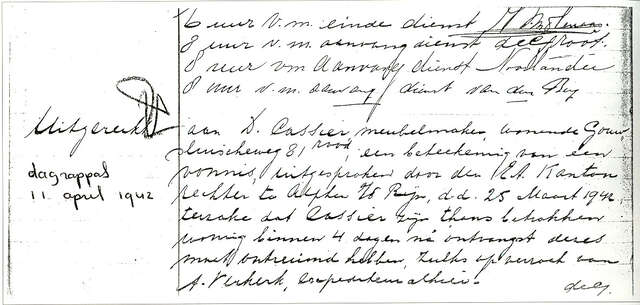 6 uur v.m. einde dienst
8 uur v.m. aanvang dienst deGroot.
8 uur vm Aanvang dienst Noollander
8 uur v.m. aanvang dienst van den Berg
Uitgereikt
dagrappad
11 april 1942
aan D. Cassier, meubelmaker, wonende Gouw-
sluischeweg 81, rood, een beteekening van een
vonnis, uitgesproken door den E.A. Kanton
rechter te Alphen a/d Rijn, d.d. 25 Maart 1942,
terzake dat Cassier zijn thans betrokken
woning binnen 4 dagen na ontvangst deres
moet ontruimd hebben, zulks op verzoek van
A. Verkerk, expediteur alhier.
deG.